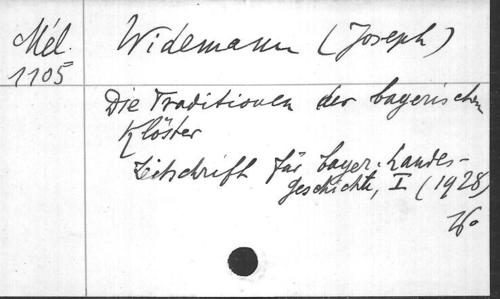 Mél. 1105
Widemann (Joseph)
Die Traditionen der bayerischen
Klöster
Zeitschrift für bayer. Landes-
geschichte, I (1928)